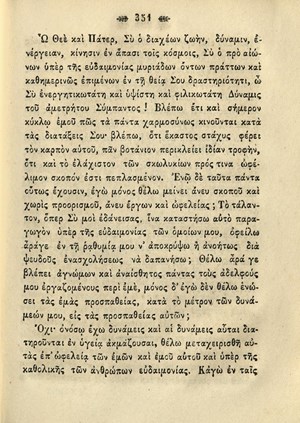 351
Ὦ Θεὲ καὶ Πάτερ, Σὺ ὁ διαχέων ζωὴν, δύναμιν, ἐ-
νέργειαν, κίνησιν ἐν ἅπασι τοῖς κόσμοις, Σὺ ὁ πρὸ αἰώ-
νων ὑπὲρ τῆς εὐδαιμονίας μυριάδων ὄντων πράττων καὶ
καθημερινῶς ἐπιμένων ἐν τῇ θείᾳ Σου δραστηριότητι, ὦ
Σὺ ἐνεργητικωτάτη καὶ ὑψίστη καὶ φιλικωτάτη Δύναμις
τοῦ ἀμετρήτου Σύμπαντος! Βλέπω ὅτι καὶ σήμερον
κύκλῳ ἐμοῦ πῶς τὰ πάντα χαρμοσύνως κινοῦνται κατὰ
τὰς διατάξεις Σου· βλέπω, ὅτι ἕκαστος στάχυς φέρει
τὸν καρπὸν αὐτοῦ, πᾶν βοτάνιον περικλείει ἰδίαν τροφὴν,
ὅτι καὶ τὸ ἐλάχιστον τῶν σκωλυκίων πρός τινα ὠφέ-
λιμον σκοπόν ἐστι πεπλασμένον. Ἐνῷ δὲ ταῦτα πάντα
οὕτως ἔχουσιν, ἐγὼ μόνος θέλω μείνει ἄνευ σκοποῦ καὶ
χωρὶς προορισμοῦ, ἄνευ ἔργων καὶ ὠφελείας; Τὸ τάλαν-
τον, ὅπερ Σὺ μοὶ ἐδάνεισας, ἵνα καταστήσω αὐτὸ παρα-
γωγὸν ὑπὲρ τῆς εὐδαιμονίας τῶν ὁμοίων μου, ὀφείλω
ἄραγε ἐν τῇ ῥᾳθυμίᾳ μου ν' ἀποκρύψω ἢ ἀνοήτως διὰ
ψευδοῦς ἐνασχολήσεως νὰ δαπανήσω; Θέλω ἄρα γε
βλέπει ἀγνώμων καὶ ἀναίσθητος πάντας τοὺς ἀδελφούς
μου ἐργαζομένους περὶ ἐμὲ, μόνος δ' ἐγὼ δὲν θέλω ἑνώ-
σει τὰς ἐμὰς προσπαθείας, κατὰ τὸ μέτρον τῶν δυνά-
μεών μου, εἰς τὰς προσπαθείας αὐτῶν;
Ὄχι· ὁνόσῳ ἔχω δυνάμεις καὶ αἱ δυνάμεις αὗται δια-
τηροῦνται ἐν ὑγείᾳ ἀκμάζουσαι, θέλω μεταχειρισθῆ αὐ-
τὰς ἐπ' ὠφελείᾳ τῶν ἐμῶν καὶ ἐμοῦ αὐτοῦ καὶ ὑπὲρ τῆς
καθολικῆς τῶν ἀνθρώπων εὐδαιμονίας. Κἀγὼ ἐν ταῖς